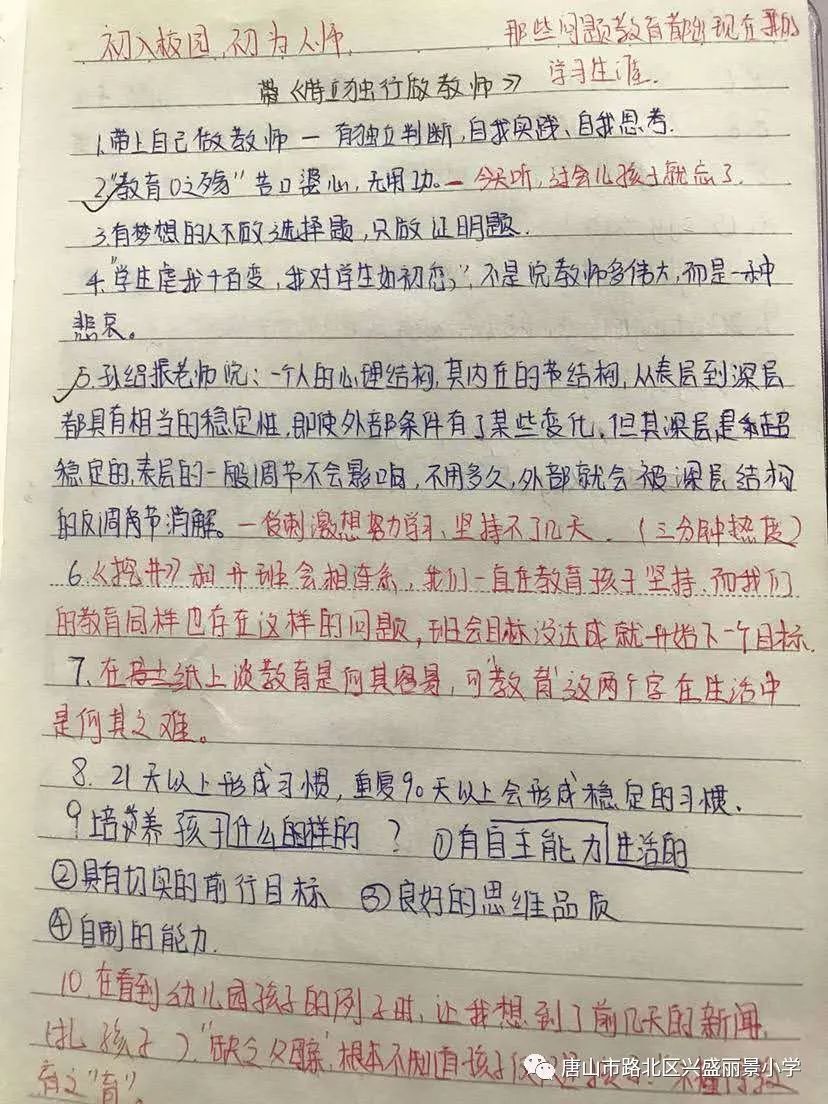 初入校园,初为人师.
那些问题教育都出现在我的
学习生涯.
带《特立独行做教师》
1.带上自己做教师 — 有独立判断,自我实践、自我思考.
2."教育口之殇" 苦口婆心,无用功。— 今天听,过会儿孩子就忘了.
3.有梦想的人不做选择题,只做证明题.
4."学生虐我千百变,我对学生如初恋",不是说教师多伟大,而是一种
悲哀。
5.孙绍振老师说:一个人的心理结构,其内在的节结构,从表层到深层
都具有相当的稳定性,即使外部条件有了某些变化.但其深层是超
稳定的,表层的一般调节不会影响,不用多久,外部就会被深层结构
的反调节消解。一般刺激想努力学习、坚持不了几天.(三分钟热度)
6.《挖井》和开班会相连系,我们一直在教育孩子坚持.而我们
的教育同样也存在这样的问题,班会目标没达成就开始下一个目标.
7.在纸上谈教育是何其容易,可"教育"这两个字在生活中
是何其之难。
8. 21天以上形成习惯,重复90天以上会形成稳定的习惯.
9培养孩子什么的样的 ? ①有自主能力生活的
②具有切实的前行目标 ③良好的思维品质
④自制的能力.
10.在看到幼儿园孩子的例子时,让我想到了前几天的新闻,
孩子 "缺乏父母亲",根本不知道孩子
"育"。
唐山市路北区兴盛丽景小学